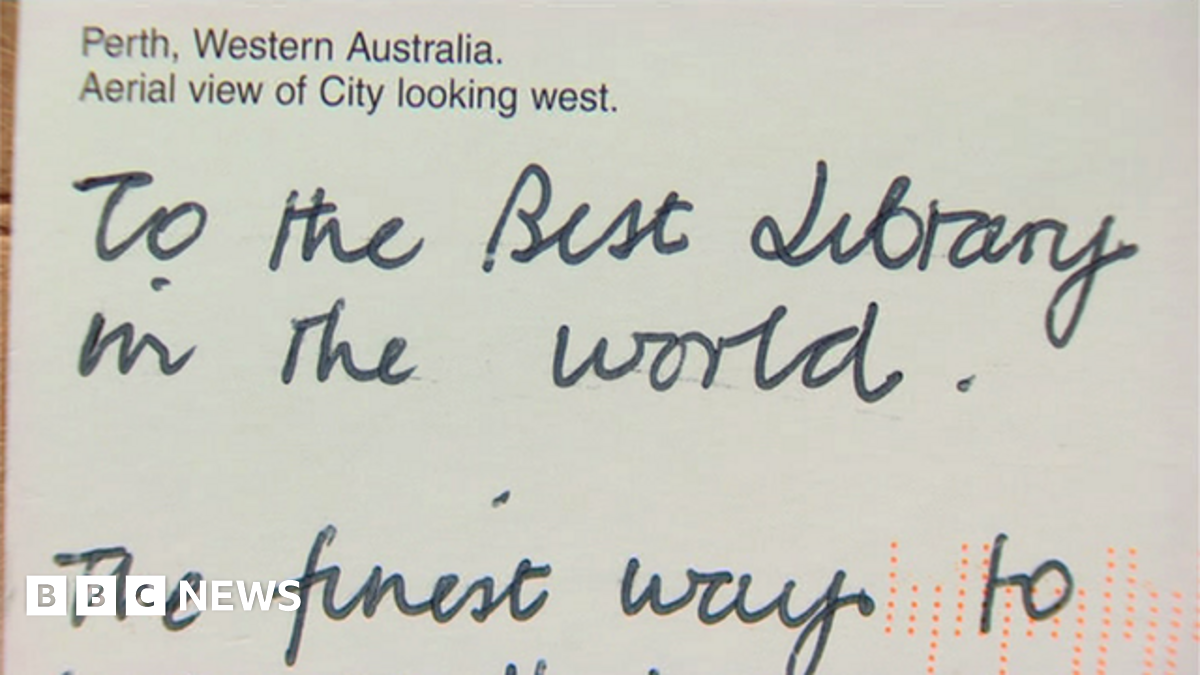 Perth, Western Australia.
Aerial view of City looking west.
To the Best Library
in the world.
The finest way to
BBC NEWS